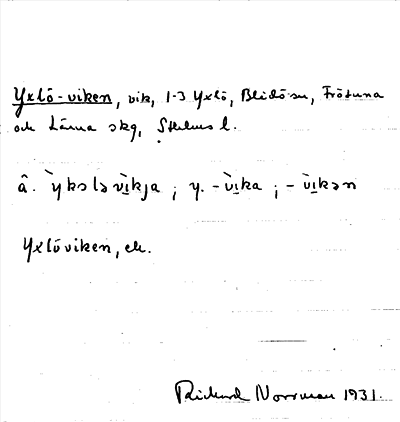 Yxlö-viken, vik, 1-3 Yxlö, Blidö sn, Frötuna
och Länna skg, Sthlms l.
å. `ykslə`vi̲kja ; y. -`vi̲ka ; -`vi̲kən
Yxlöviken, ek.
Rickard Norrman 1931.